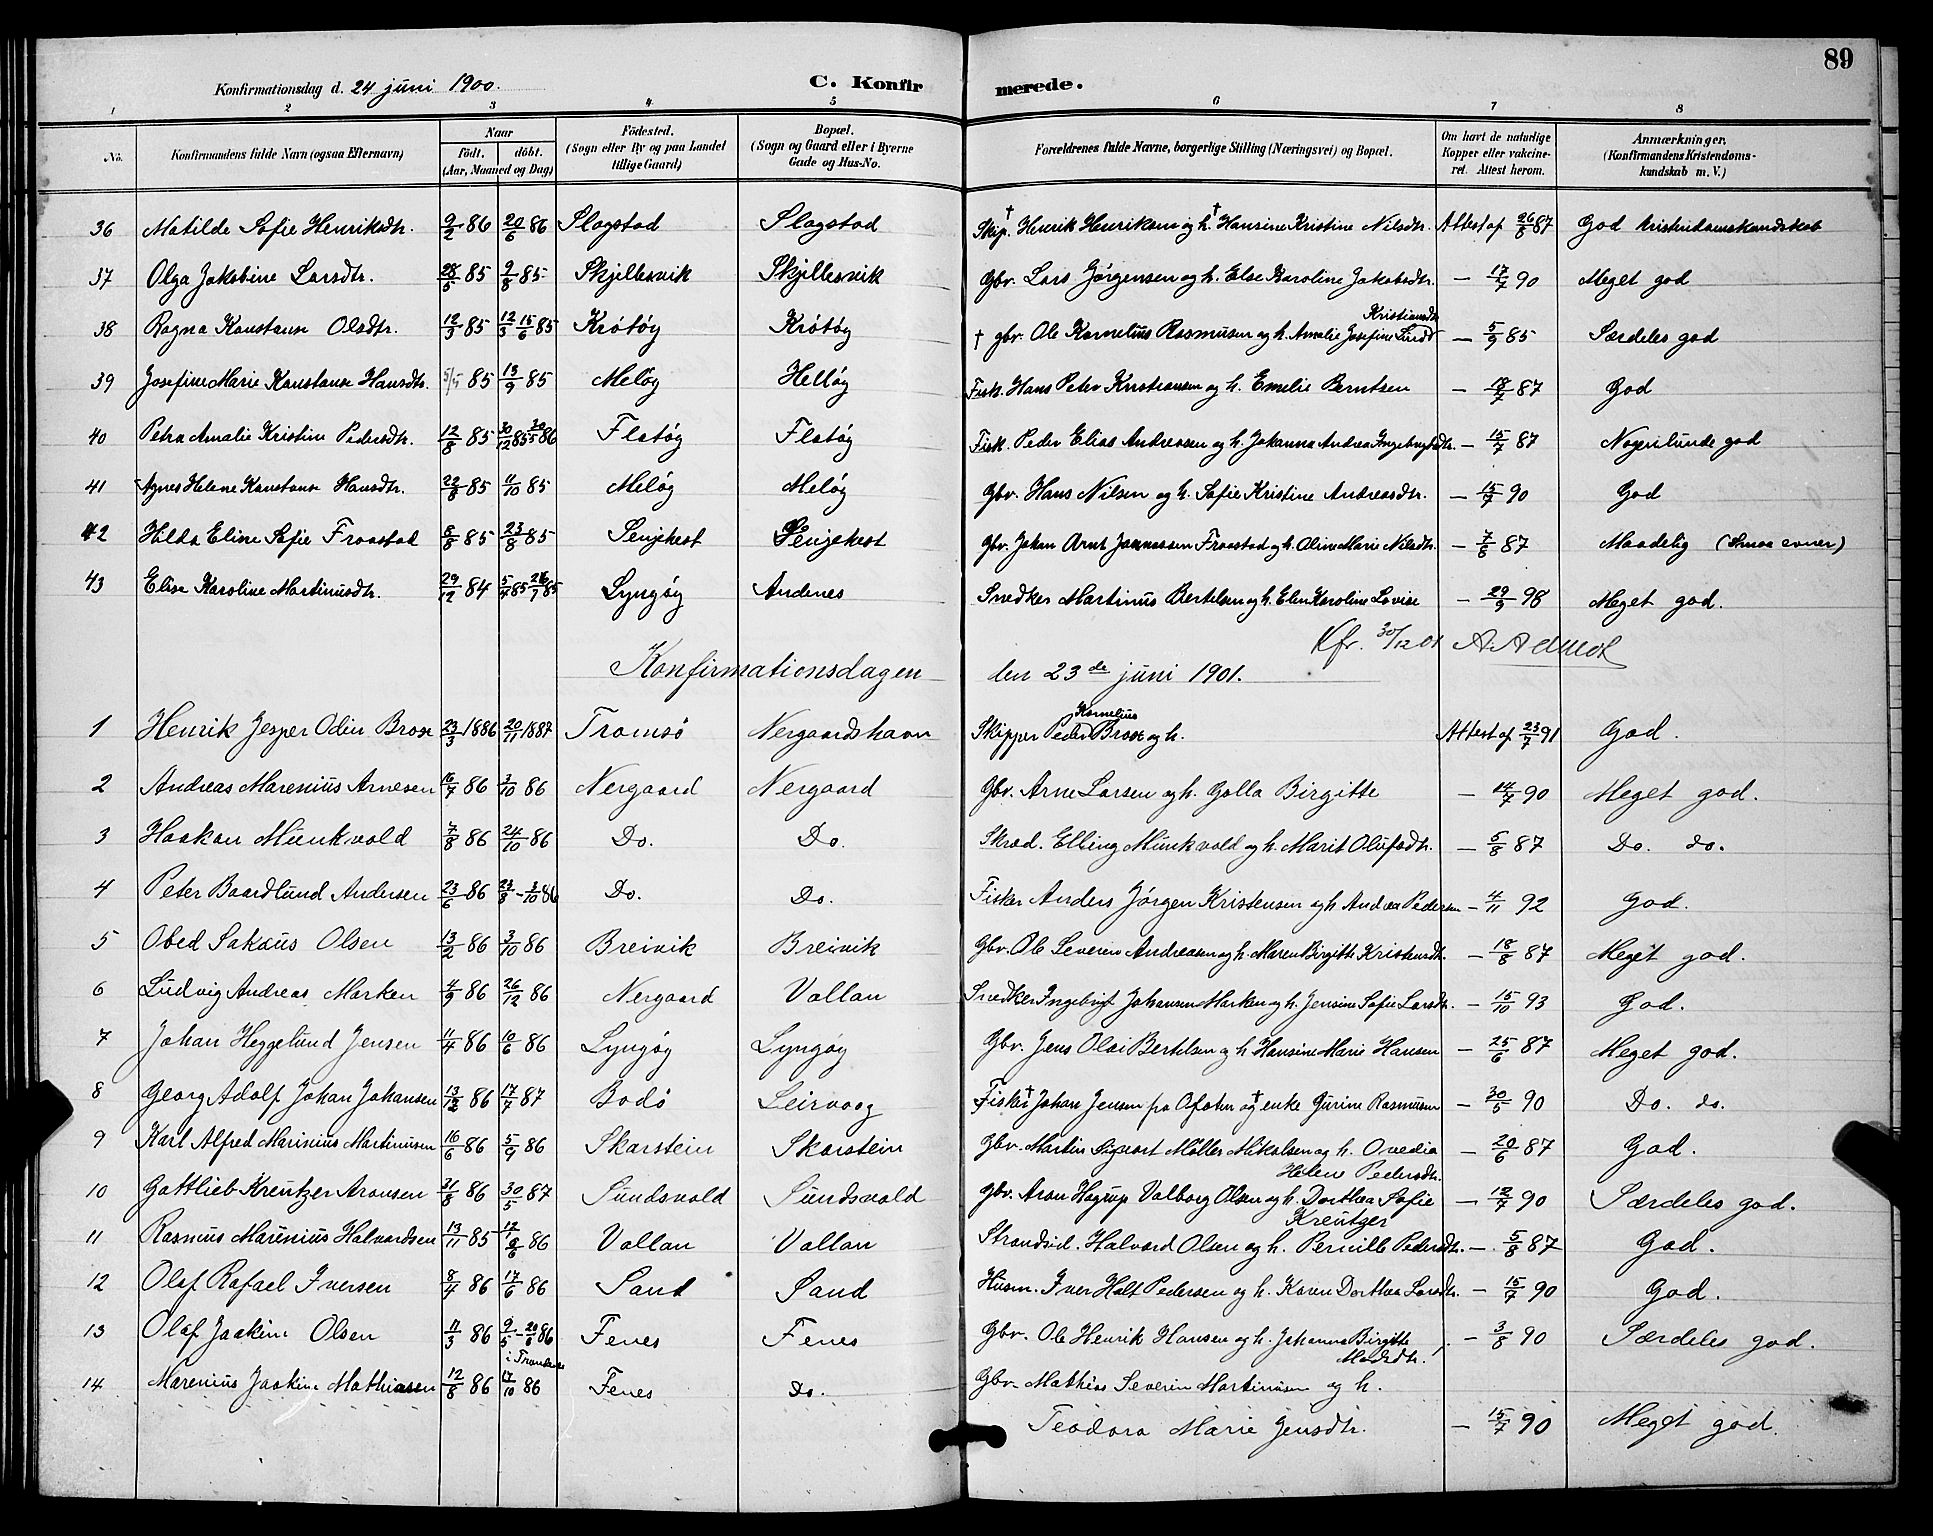 89
Konfirmationsdag d. 24 juni 1900.
C. Konfirmerede.
1 2 3 4 5 6 7 8
No. Konfirmandens fulde Navn (ogsaa Efternavn) Naar födt. döbt. (Aar, Maaned og Dag) Födested. (Sogn eller By og paa Landet tillige Gaard) Bopæl. (Sogn og Gaard eller i Byerne Gade og Hus-No. Forældrenes fulde Navne, borgerlige Stilling (Næringsvei) og Bopæl. Om havt de naturlige Kopper eller vakcineret. Attest herom. Anmærkninger. (Konfirmandens Kristendomskundskab m. V.)
36 Matilde Sofie Henriksdtr. 9/2 86 20/6 86 Slagstad Slagstad Skip. † Henrik Henriksen og h. † Hansine Kristine Nilsdtr. Attest af 26/8 87 God kristendomskundskab
37 Olga Jakobine Larsdtr. 28/5 85 9/8 85 Skjellesvik Skjellesvik Gbr. Lars Jørgensen og h. Else Karoline Jakobsdtr. — 17/7 90 Meget god
38 Ragna Konstanse Olsdtr. 12/3 85 12/3 15/6 85 Krötöy Krötöy † gbr. Ole Kornelius Rasmusen og h. Amalie Josefine Kristiansdtr — 5/9 85 Særdeles god
39 Josefine Marie Konstanse Hansdtr. 5/5 85 13/9 85 Melöy Hellöy Fisk. Hans Peter Kristiansen og h. Emelie Berntsen — 18/7 87 God
40 Petra Amalie Kristine Pedersdtr. 12/8 85 30/12 85 30/5 86 Flatöy Flatöy Fisk. Peder Elias Andreassen og h. Johanna Andrea Ingebrigtsdtr. — 15/7 87 Nogenlunde god
41 Agnes Helene Konstanse Hansdtr. 22/8 85 11/10 85 Melöy Melöy Gbr. Hans Nilsen og h. Sofie Kristine Andreasdtr. — 15/7 90 God
42 Hilda Eline Sofie Fraastad 8/8 85 23/8 85 Senjehest Senjehest Gbr. Johan Arnt Johnassen Fraastad og h. Oline Marie Nilsdtr. — 7/6 87 Maadelig (smaa evner)
43 Elise Karoline Martinusdtr. 29/12 84 5/4 85 26/7 85 Lyngöy Andenes Snedker Martinus Bertelsen og h. Elen Karoline Lovise — 29/9 98 Meget god.
Kfr. 30/12 01
Konfirmationsdagen den 23de juni 1901.
1 Henrik Jesper Odin Brose 23/3 1886 20/11 1887 Tromsö Nergaardshavn Skipper Peder Kornelius Brose og h. Attest af 23/7 91 God.
2 Andreas Marenius Arnesen 16/7 86 3/10 86 Nergaard Nergaard Gbr. Arne Larsen og h. Golla Birgitte — 14/7 90 Meget god.
3 Haakon Munkvold 7/8 86 24/10 86 Do. Do. Skræd. Elling Munkvold og h. Marit Olufsdtr. — 5/8 87 Do. do.
4 Peter Baardlund Andersen 23/6 86 23/8 – 3/10 86 Do. Do. Fisker Anders Jörgen Kristensen og h Andrea Pedersen — 4/11 92 God.
5 Obed Sakæus Olsen 13/2 86 3/10 86 Breivik Breivik Gbr. Ole Severin Andreasen og h. Maren Birgitte Kristensdtr. — 18/8 87 Meget god.
6 Ludvig Andreas Marken 4/9 86 26/12 86 Nergaard Vollan Snedker Ingebrigt Johansen Marken og h. Jensine Sofie Larsdtr. — 15/10 93 God.
7 Johan Heggelund Jensen 11/4 86 10/6 86 Lyngöy Lyngöy Gbr. Jens Olai Bertelsen og h Hansine Marie Hansen — 25/6 87 Meget god.
8 Georg Adolf Johan Johansen 13/12 86 17/7 87 Bodö Leirvaag Fisker † Johan Jensen fra Ofoten og † enke Gurine Rasmusen — 30/5 90 Do. do.
9 Karl Alfred Marinius Martinusen 16/6 86 5/9 86 Skarstein Skarstein Gbr. Martin Sigvart Möller Mikalsen og h. Ovedia Helene Pedersdtr. — 20/6 87 God.
10 Gottlieb Kreutzer Aronsen 21/8 86 30/5 87 Sundsvold Sundsvold Gbr. Aron Hagrup Valborg Olsen og h. Dorthea Sofie Kreutzer — 12/7 90 Særdeles god.
11 Rasmus Marenius Halvardsen 13/11 85 12/1 9/6 86 Vollan Vollan Strandsid. Halvard Olsen og h. Pernille Pedersdtr. — 5/8 87 God.
12 Olaf Rafael Iversen 8/4 86 17/6 86 Sand Sand Husm. Iver Holt Pedersen og h. Karen Dorthea Larsdtr. — 15/7 90 God.
13 Olaf Joakim Olsen 11/3 86 9/5 – 20/6 86 Fenes Fenes Gbr. Ole Henrik Hansen og h. Johanna Birgitte Madsdtr. — 3/8 90 Særdeles god.
14 Marenius Joakim Mathiasen 12/8 86 17/10 86 Fenes Do. Gbr. Mathias Severin Martinusen og h.
Teodora Marie Jensdtr. — 15/7 90 Meget god.